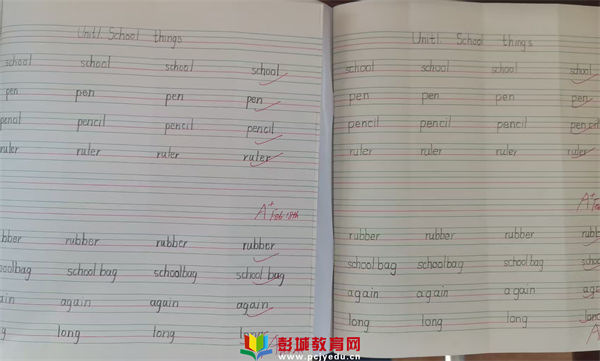 Unit1. School things
school school school school
pen pen pen pen
pencil pencil pencil pencil
ruler ruler ruler ruler
A+
rubber rubber rubber
schoolbag schoolbag school bag
again again again
long long
Unit1. School things
school school school school
pen pen pen pen
pencil pencil pencil pencil
ruler ruler ruler ruler
A+
rubber rubber rubber
school bag schoolbag school bag
again again again
long long long long
彭城教育网
www.pcjyedu.cn